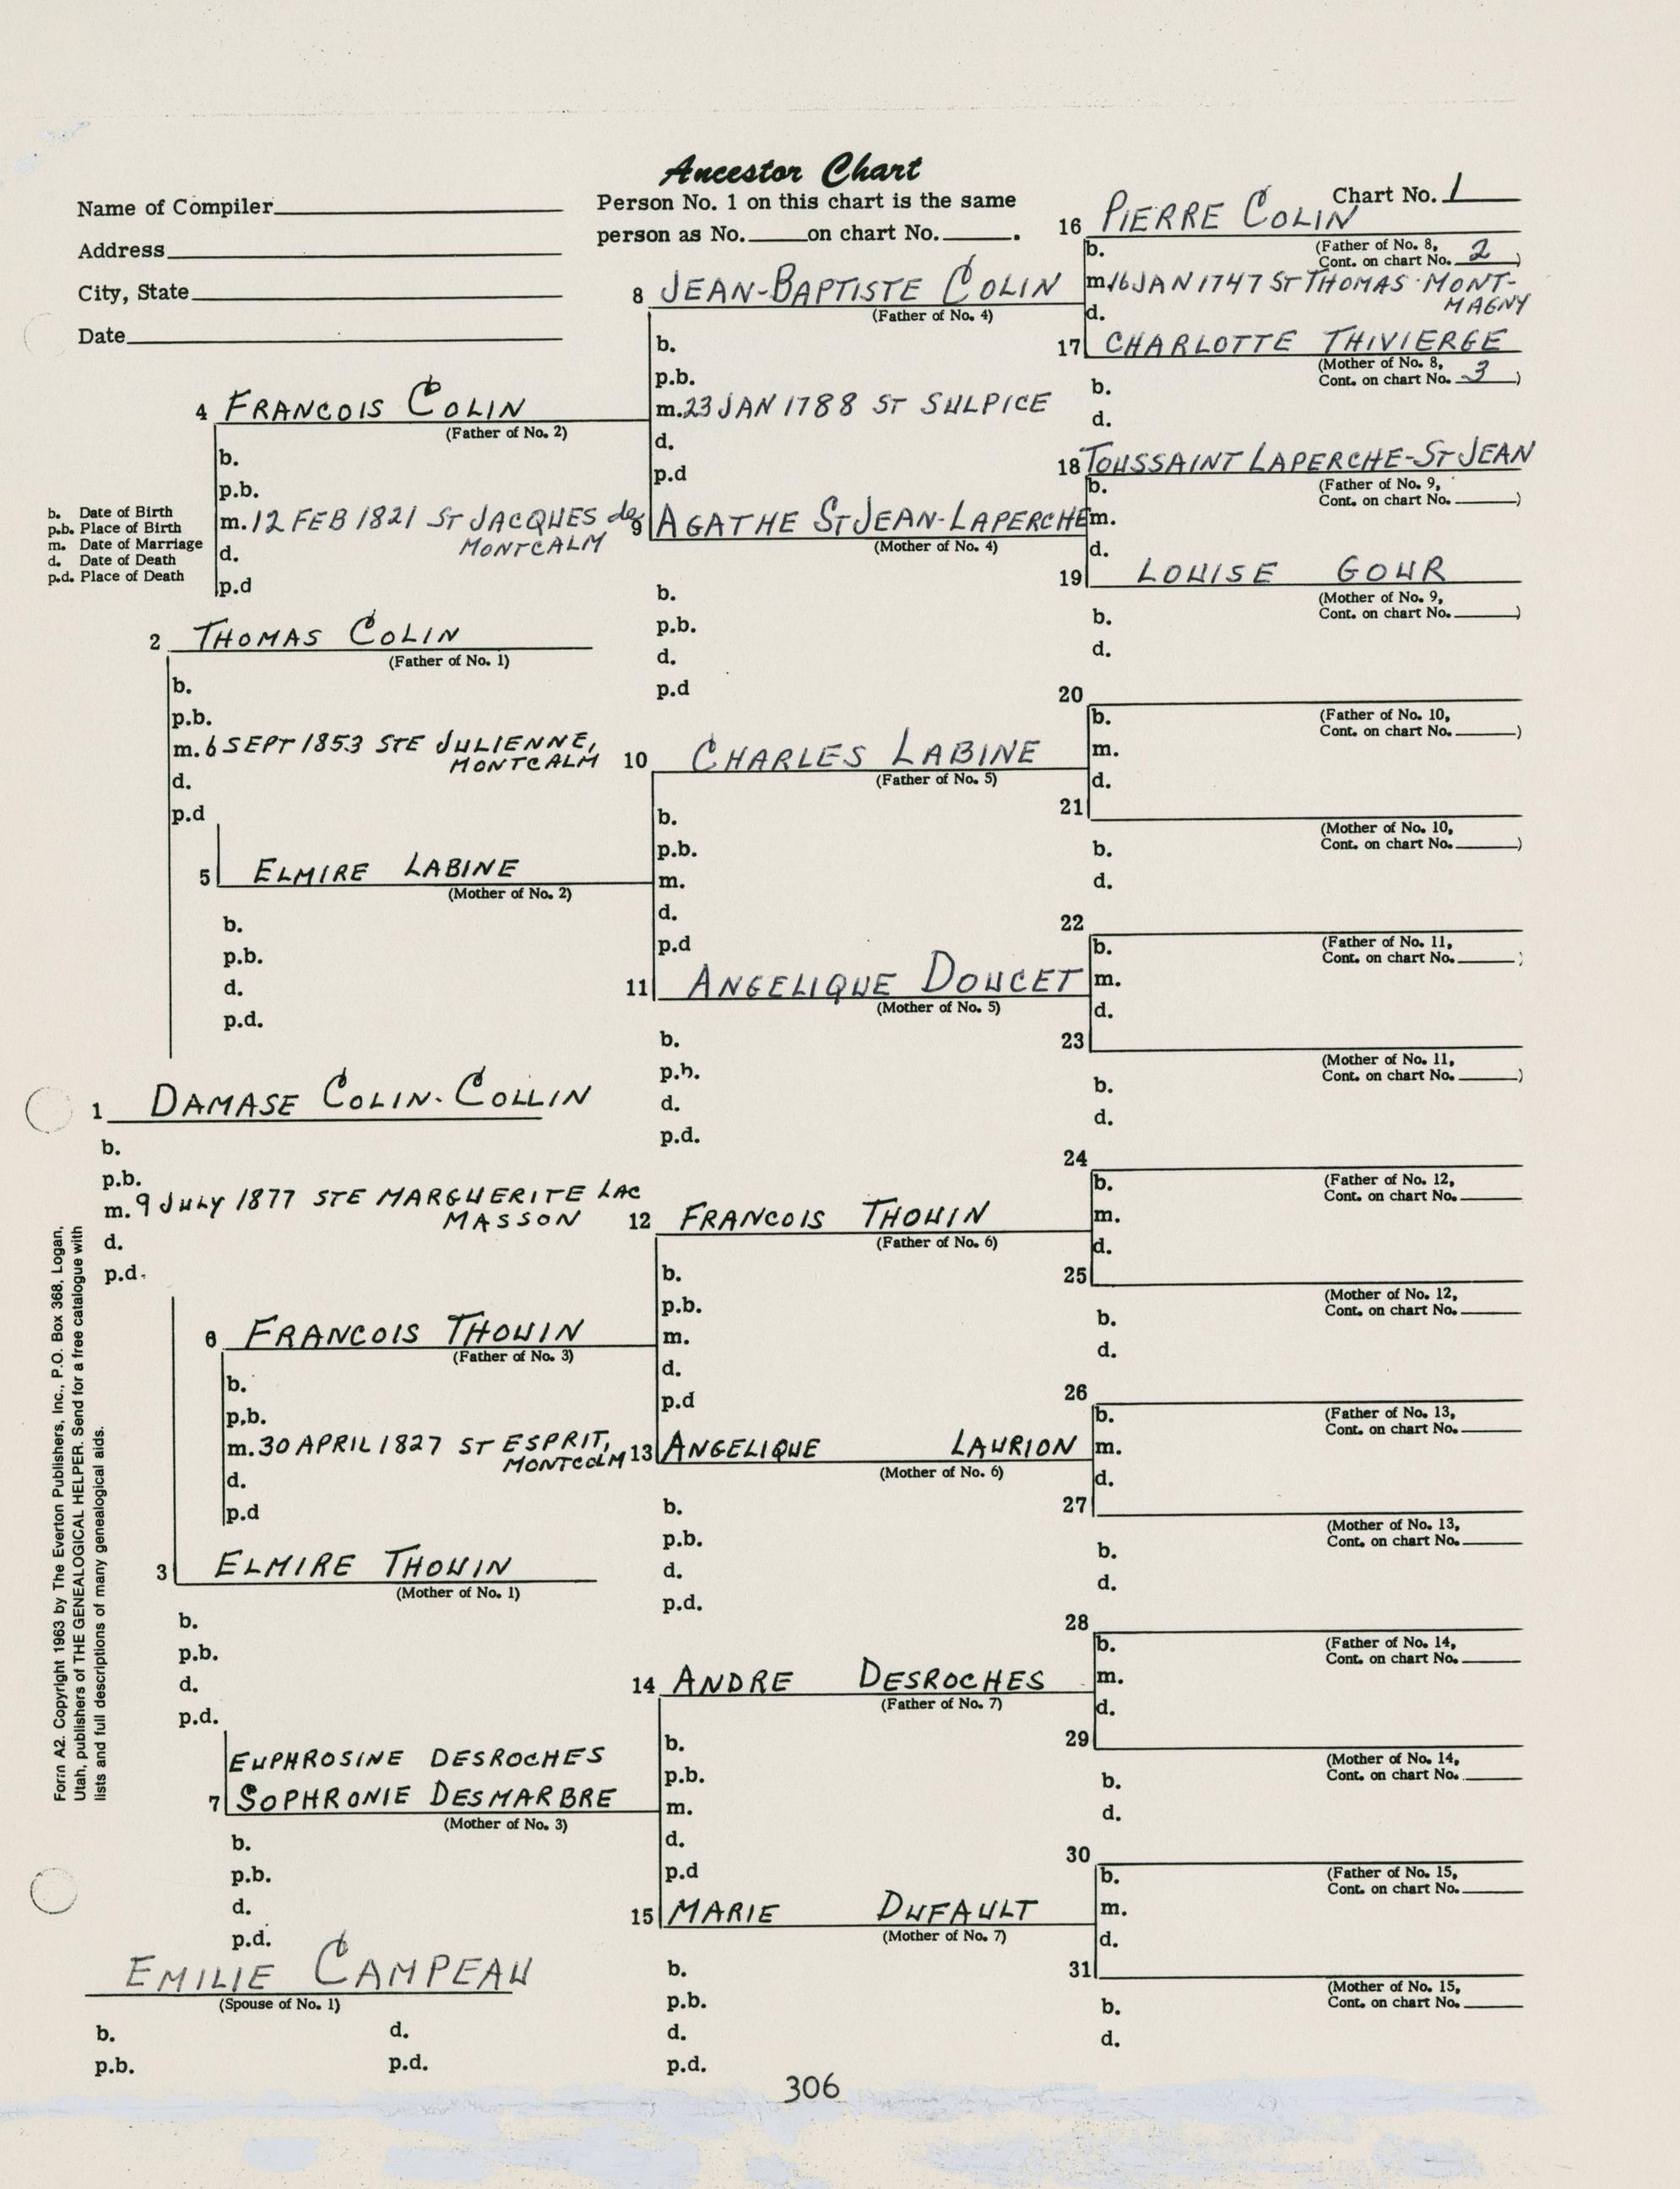 Ancestor Chart
Name of Compiler
Address
City, State
Date
Person No. 1 on this chart is the same
person as No. on chart No. .
Chart No. 1
16 PIERRE COLIN
(Father of No. 8,
b. Cont. on chart No. 2 )
m. 16 JAN 1747 ST THOMAS - MONT-
MAGNY
d.
8 JEAN-BAPTISTE COLIN
(Father of No. 4)
b.
p.b.
m. 23 JAN 1788 ST SULPICE
d.
p.d
17 CHARLOTTE THIVIERGE
(Mother of No. 8,
b. Cont. on chart No. 3 )
d.
4 FRANCOIS COLIN
(Father of No. 2)
b.
p.b.
m. 12 FEB 1821 ST JACQUES de
MONTCALM
d.
p.d
18 TOUSSAINT LAPERCHE-ST JEAN
b. (Father of No. 9,
Cont. on chart No. )
m.
d.
b. Date of Birth
p.b. Place of Birth
m. Date of Marriage
d. Date of Death
p.d. Place of Death
9 AGATHE ST JEAN-LAPERCHE
(Mother of No. 4)
b.
p.b.
d.
p.d
19 LOUISE GOUR
(Mother of No. 9,
b. Cont. on chart No. )
d.
2 THOMAS COLIN
(Father of No. 1)
b.
p.b.
m. 6 SEPT 1853 STE JULIENNE,
MONTCALM
d.
p.d
20
b. (Father of No. 10,
Cont. on chart No. )
m.
d.
10 CHARLES LABINE
(Father of No. 5)
b.
p.b.
m.
d.
p.d
21
(Mother of No. 10,
b. Cont. on chart No. )
d.
5 ELMIRE LABINE
(Mother of No. 2)
b.
p.b.
d.
p.d.
22
b. (Father of No. 11,
Cont. on chart No. )
m.
d.
11 ANGELIQUE DOUCET
(Mother of No. 5)
b.
p.b.
d.
p.d.
23
(Mother of No. 11,
b. Cont. on chart No. )
d.
1 DAMASE COLIN-COLLIN
b.
p.b.
m. 9 JULY 1877 STE MARGUERITE LAC
MASSON
d.
p.d.
24
b. (Father of No. 12,
Cont. on chart No.
m.
d.
12 FRANCOIS THOUIN
(Father of No. 6)
b.
p.b.
m.
d.
p.d
25
(Mother of No. 12,
b. Cont. on chart No.
d.
6 FRANCOIS THOUIN
(Father of No. 3)
b.
p.b.
m. 30 APRIL 1827 ST ESPRIT,
MONTCOLM
d.
p.d
26
b. (Father of No. 13,
Cont. on chart No.
m.
d.
13 ANGELIQUE LAURION
(Mother of No. 6)
b.
p.b.
d.
p.d.
27
(Mother of No. 13,
b. Cont. on chart No.
d.
3 ELMIRE THOUIN
(Mother of No. 1)
b.
p.b.
d.
p.d.
28
b. (Father of No. 14,
Cont. on chart No.
m.
d.
14 ANDRE DESROCHES
(Father of No. 7)
b.
p.b.
m.
d.
p.d
29
(Mother of No. 14,
b. Cont. on chart No.
d.
EUPHROSINE DESROCHES
7 SOPHRONIE DESMARBRE
(Mother of No. 3)
b.
p.b.
d.
p.d.
30
b. (Father of No. 15,
Cont. on chart No.
m.
d.
15 MARIE DUFAULT
(Mother of No. 7)
b.
p.b.
d.
p.d.
31
(Mother of No. 15,
b. Cont. on chart No.
d.
EMILIE CAMPEAU
(Spouse of No. 1)
b. d.
p.b. p.d.
306
Form A2. Copyright 1963 by The Everton Publishers, Inc., P.O. Box 368, Logan,
Utah, publishers of THE GENEALOGICAL HELPER. Send for a free catalogue with
lists and full descriptions of many genealogical aids.